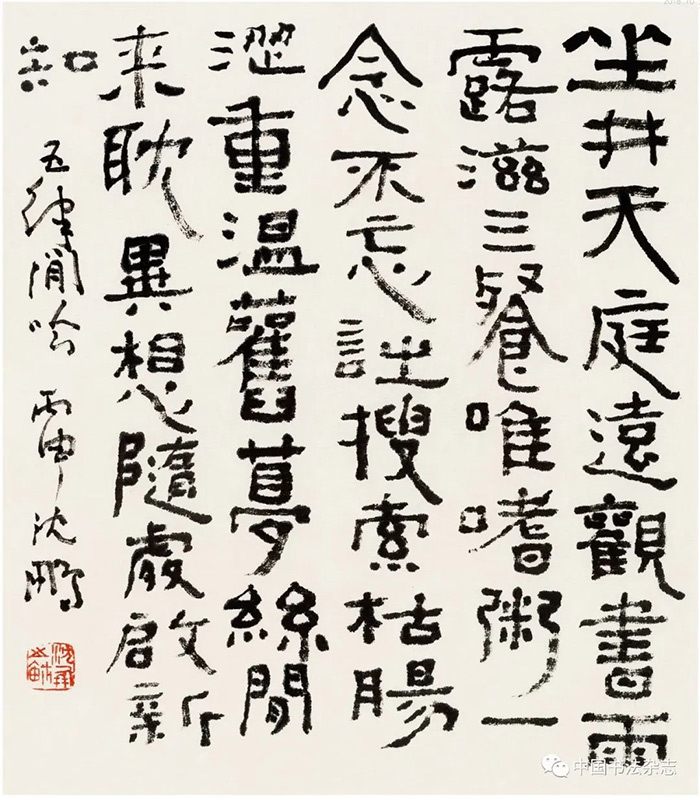 坐井天庭遠觀書雨
露滋三餐唯嗜粥一
念不忘詩搜索枯腸
澀重溫舊夢絲閒
来耽異想隨處啟新
知
五律閒吟 丙申 沈鵬
中国书法杂志